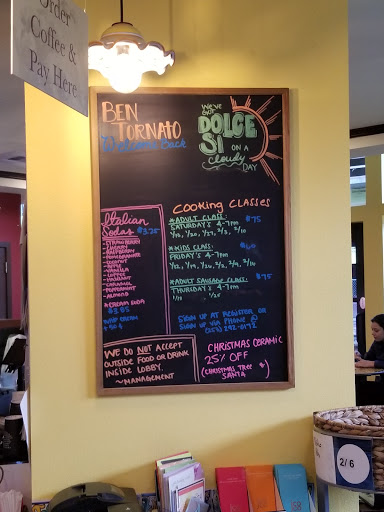 Order
Coffee &
Pay Here
BEN
TORNATO
Welcome Back
WE'VE
GOT
DOLCE
SI ON A
cloudy
DAY
Italian
Sodas $3.25
- STRAWBERRY
- CHERRY
- RASPBERRY
- POMEGRANATE
- COCONUT
- VANILLA
- COFFEE
- HAZELNUT
- CARAMEL
- PEPPERMINT
- ALMOND
*CREAM SODA
$3.85
WHIP CREAM
COOKING CLASSES
*ADULT CLASS: $75
SATURDAY'S 4-7pm
*KIDS CLASS: $60
FRIDAY'S 4-7pm
*ADULT SAUSAGE CLASS $75
THURSDAY'S 4-7pm
1/10 1/25
SIGN UP AT REGISTER OR
SIGN UP VIA PHONE @
WE DO NOT ACCEPT
OUTSIDE FOOD OR DRINK
INSIDE LOBBY.
~MANAGEMENT
CHRISTMAS CERAMIC
25% OFF
(CHRISTMAS TREE
SANTA)
2/6